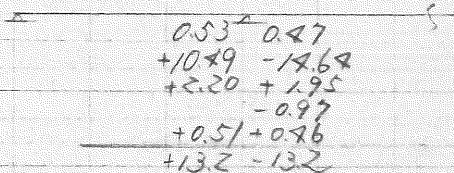 0.53 0.47
+10.49 -14.64
+2.20 +1.95
-0.97
+0.51 +0.46
+13.2 -13.2